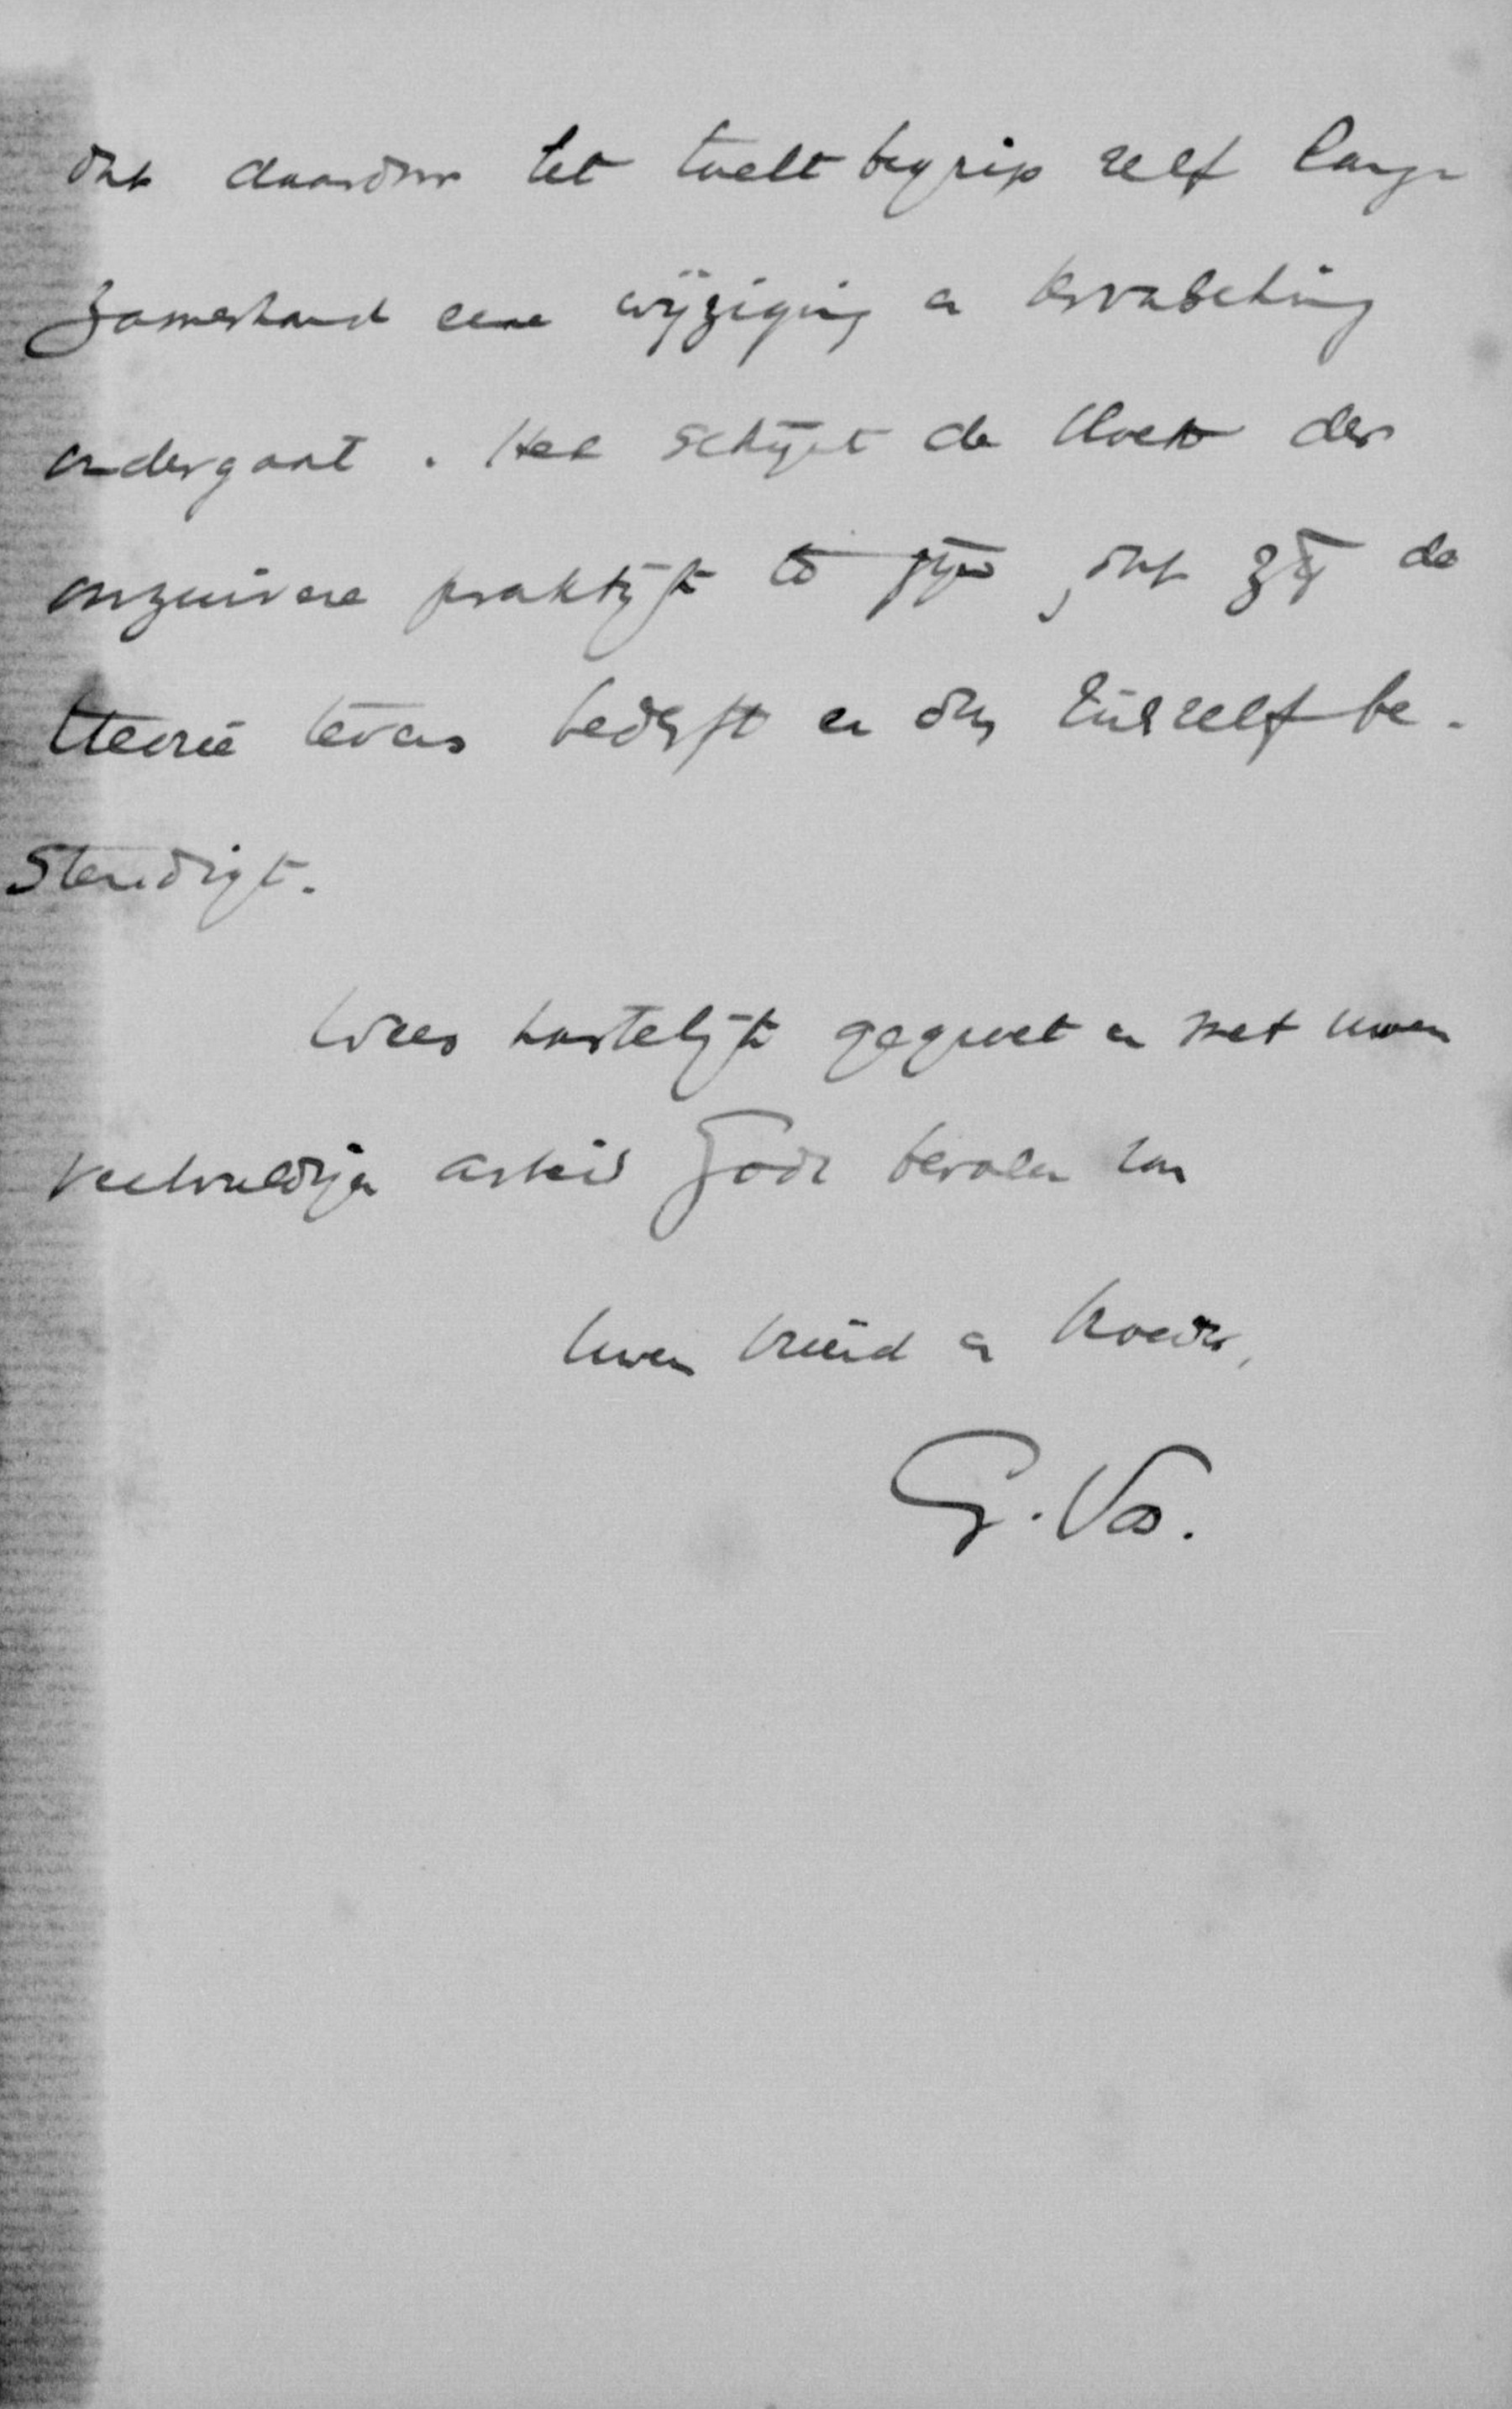 dat daardoor het tucht begrip zelf lang-
zamerhand eene wijziging en verzwakking
ondergaat. Het schijnt de vloek der
onzuivere praktijk te zijn, dat zij de
theorie tevens bederft en dus zich zelf be-
stendigt.
Wees hartelijk gegroet en met uwen
veelvuldigen arbeid Gode bevolen van
Uwen vriend en broeder,
G. Vos.